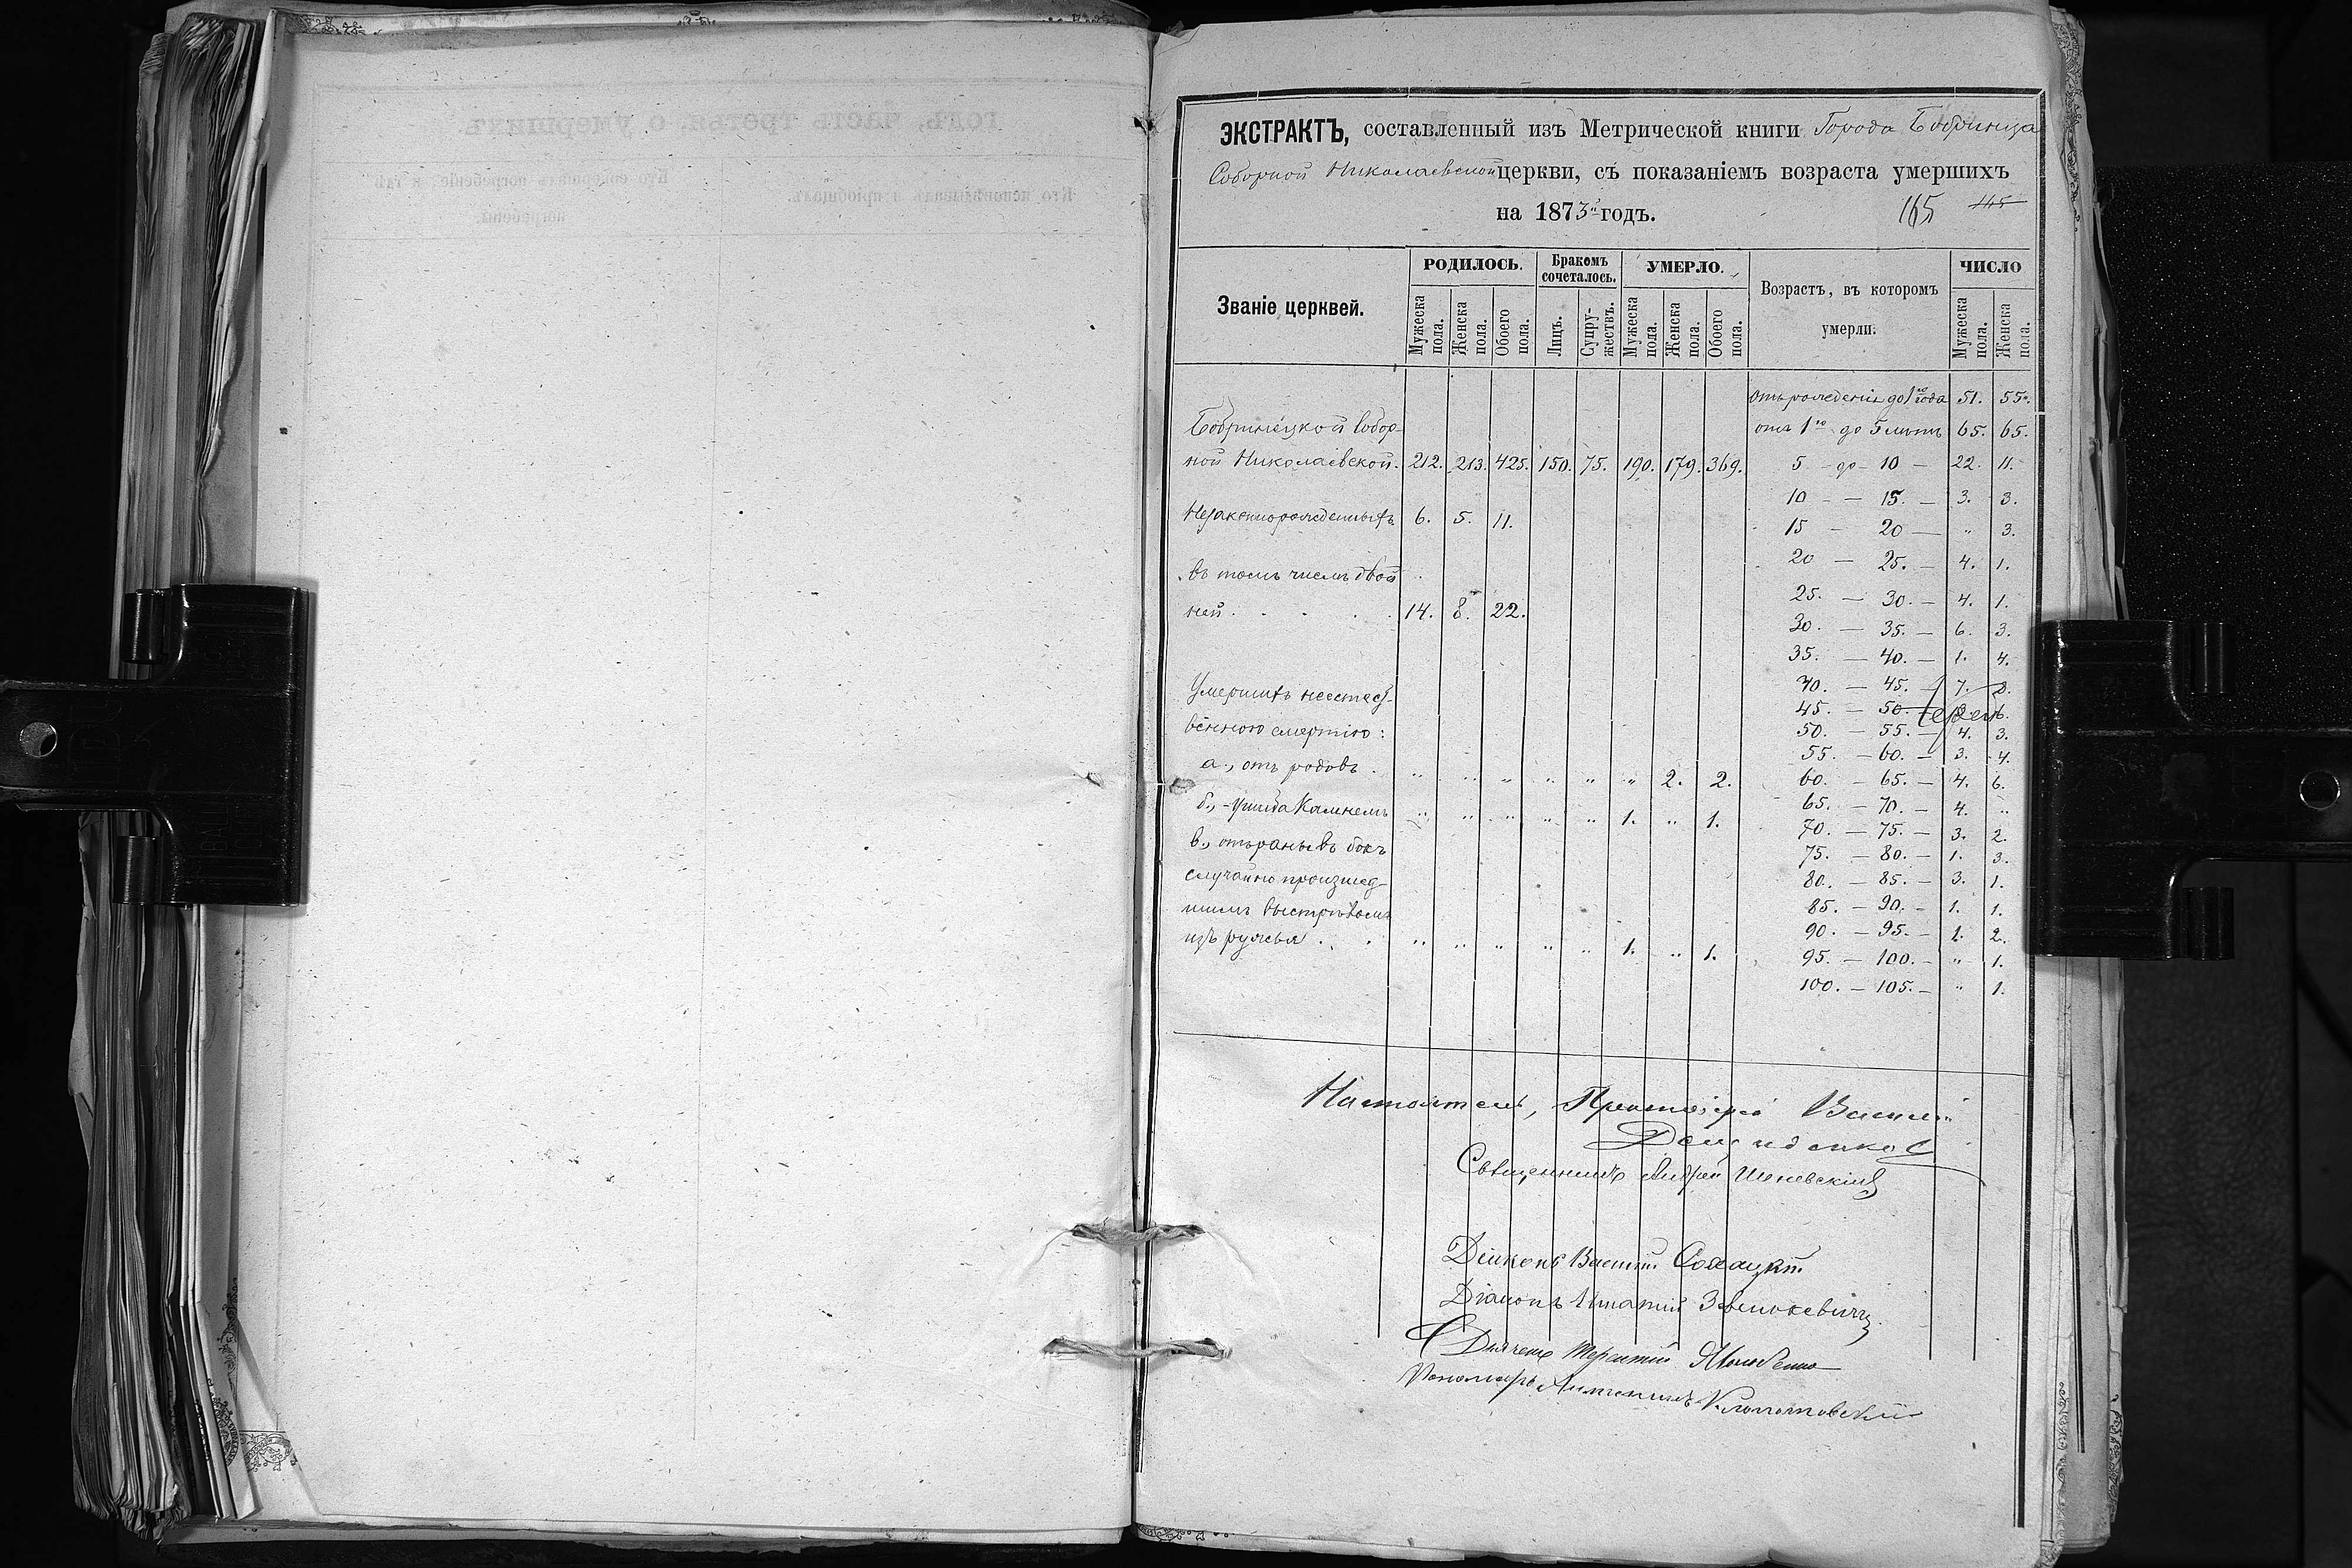 ЭКСТРАКТЪ, составленный изъ Метрической книги Города Бобринца
Соборной Николаевской церкви, съ показаніемъ возраста умершихъ
на 1873й годъ.
165 145
Званіе церквей.
РОДИЛОСЬ.
Бракомъ сочеталось.
УМЕРЛО.
Возрастъ, въ которомъ умерли.
ЧИСЛО
Мужеска пола. Женска пола. Обоего пола. Лицъ. Супружествъ. Мужеска пола. Женска пола. Обоего пола. Мужеска пола. Женска пола.
Бобринецкой Собор-
ной Николаевской. 212. 213. 425. 150. 75. 190. 179. 369.
Незаконнорожденныхъ 6. 5. 11.
въ томъ числѣ двой
ней . . . . 14. 8. 22.
Умершихъ неестест-
венною смертію:
а., отъ родовъ . " " " " " " 2. 2.
б., - ушиба Камнемъ " " " " " 1. " 1.
в., отъ раны въ бокъ
случайно произшед-
шимъ выстрѣломъ
изъ ружья . . . " " " " " 1. " 1.
отъ рожденія до 1го года 51. 55.
отъ 1го до 5 лѣтъ 65. 65.
5 - до - 10 - 22. 11.
10 - - 15. - 3. 3.
15 - 20 - " 3.
20 - 25. - 4. 1.
25. - 30. - 4. 1.
30. - 35. - 6. 3.
35. - 40. - 1. 4.
40. - 45. - 7. 8.
45. - 50.
50. - 55. - 4. 3.
55. - 60. - 3. 4.
60. - 65. - 4. 6.
65. - 70. - 4. "
70. - 75. - 3. 2.
75. - 80. - 1. 3.
80. - 85. - 3. 1.
85. - 90. - 1. 1.
90. - 95. - 1. 2.
95. - 100. - " 1.
100. - 105. - " 1.
Настоятель, Протоіерей Василій
Священникъ Андрей
Діаконъ Василій
Діаконъ Игнатій
Дьячекъ Терентій
Пономарь
годъ, часть третья, о умершихъ.
Кто исповѣдывалъ и пріобщалъ.
Кто совершалъ погребеніе и гдѣ
погребены.